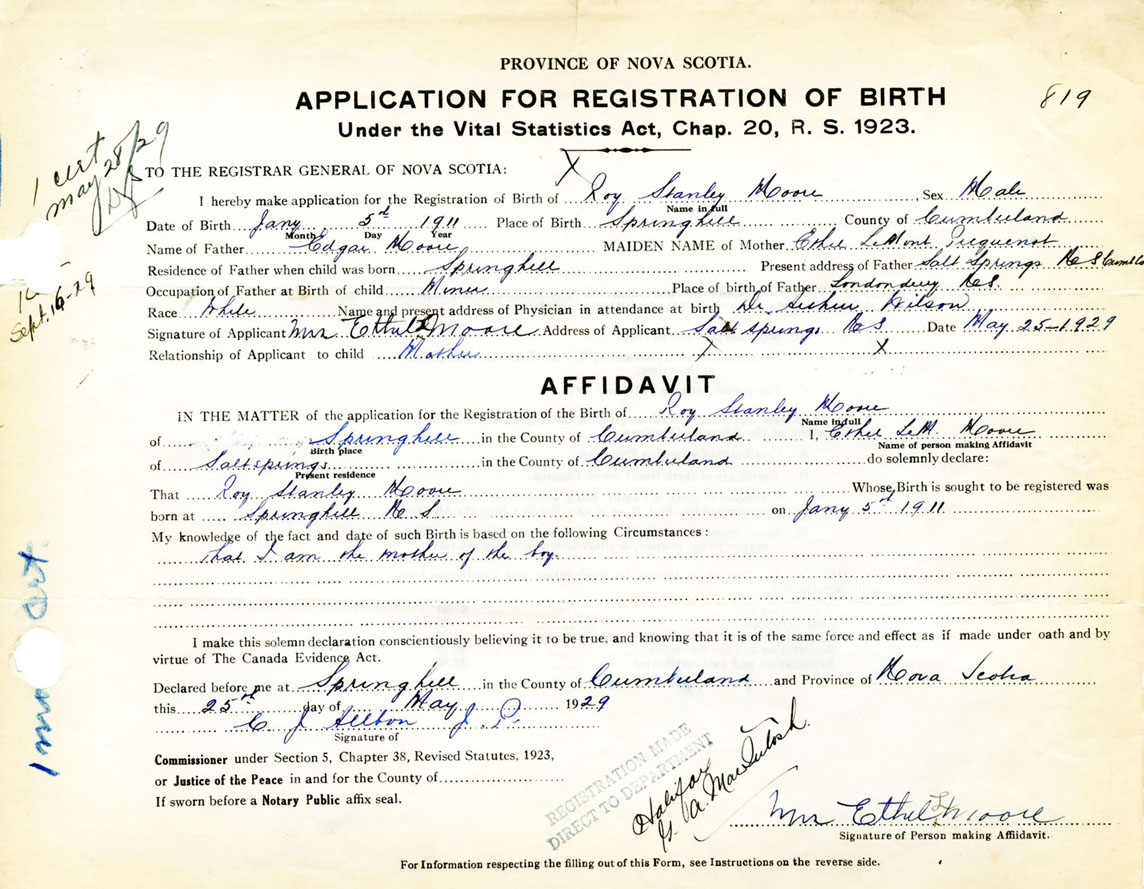 PROVINCE OF NOVA SCOTIA.
APPLICATION FOR REGISTRATION OF BIRTH
819
Under the Vital Statistics Act, Chap. 20, R. S. 1923.
1 cert
May 28/29
X
TO THE REGISTRAR GENERAL OF NOVA SCOTIA:
I hereby make application for the Registration of Birth of Roy Stanley Moore, Sex Male
Name in full
Date of Birth Jany 5th 1911 Place of Birth Springhill County of Cumberland
Month Day Year
Name of Father Edgar Moore MAIDEN NAME of Mother Ethel LeMont Picquenot
Residence of Father when child was born Springhill Present address of Father Salt Springs N S Cumb Co
Sept. 16-29
Occupation of Father at Birth of child Miner Place of birth of Father Londonderry N.S.
Race White Name and present address of Physician in attendance at birth Dr. Arthur Wilson
Signature of Applicant Mrs Ethel L Moore Address of Applicant Salt springs N S Date May 25-1929
Relationship of Applicant to child Mother X X
AFFIDAVIT
IN THE MATTER of the application for the Registration of the Birth of Roy Stanley Moore
Name in full
of Springhill in the County of Cumberland I, Ethel LeM. Moore
Birth place Name of person making Affidavit
of Saltsprings in the County of Cumberland do solemnly declare:
Present residence
That Roy Stanley Moore Whose Birth is sought to be registered was
born at Springhill N S on Jany 5th 1911
My knowledge of the fact and date of such Birth is based on the following Circumstances:
that I am the mother of the boy.
I make this solemn declaration conscientiously believing it to be true, and knowing that it is of the same force and effect as if made under oath and by
virtue of The Canada Evidence Act.
Declared before me at Springhill in the County of Cumberland and Province of Nova Scotia
this 25th day of May 1929
C J Allbon J. P.
Signature of
Commissioner under Section 5, Chapter 38, Revised Statutes, 1923,
or Justice of the Peace in and for the County of
If sworn before a Notary Public affix seal.
REGISTRATION MADE
DIRECT TO DEPARTMENT
Halifax
G. A. MacIntosh.
Mrs Ethel L Moore
Signature of Person making Affidavit.
For Information respecting the filling out of this Form, see Instructions on the reverse side.
cert.